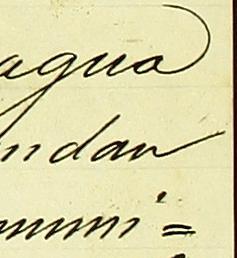 agua
ndan
muni=